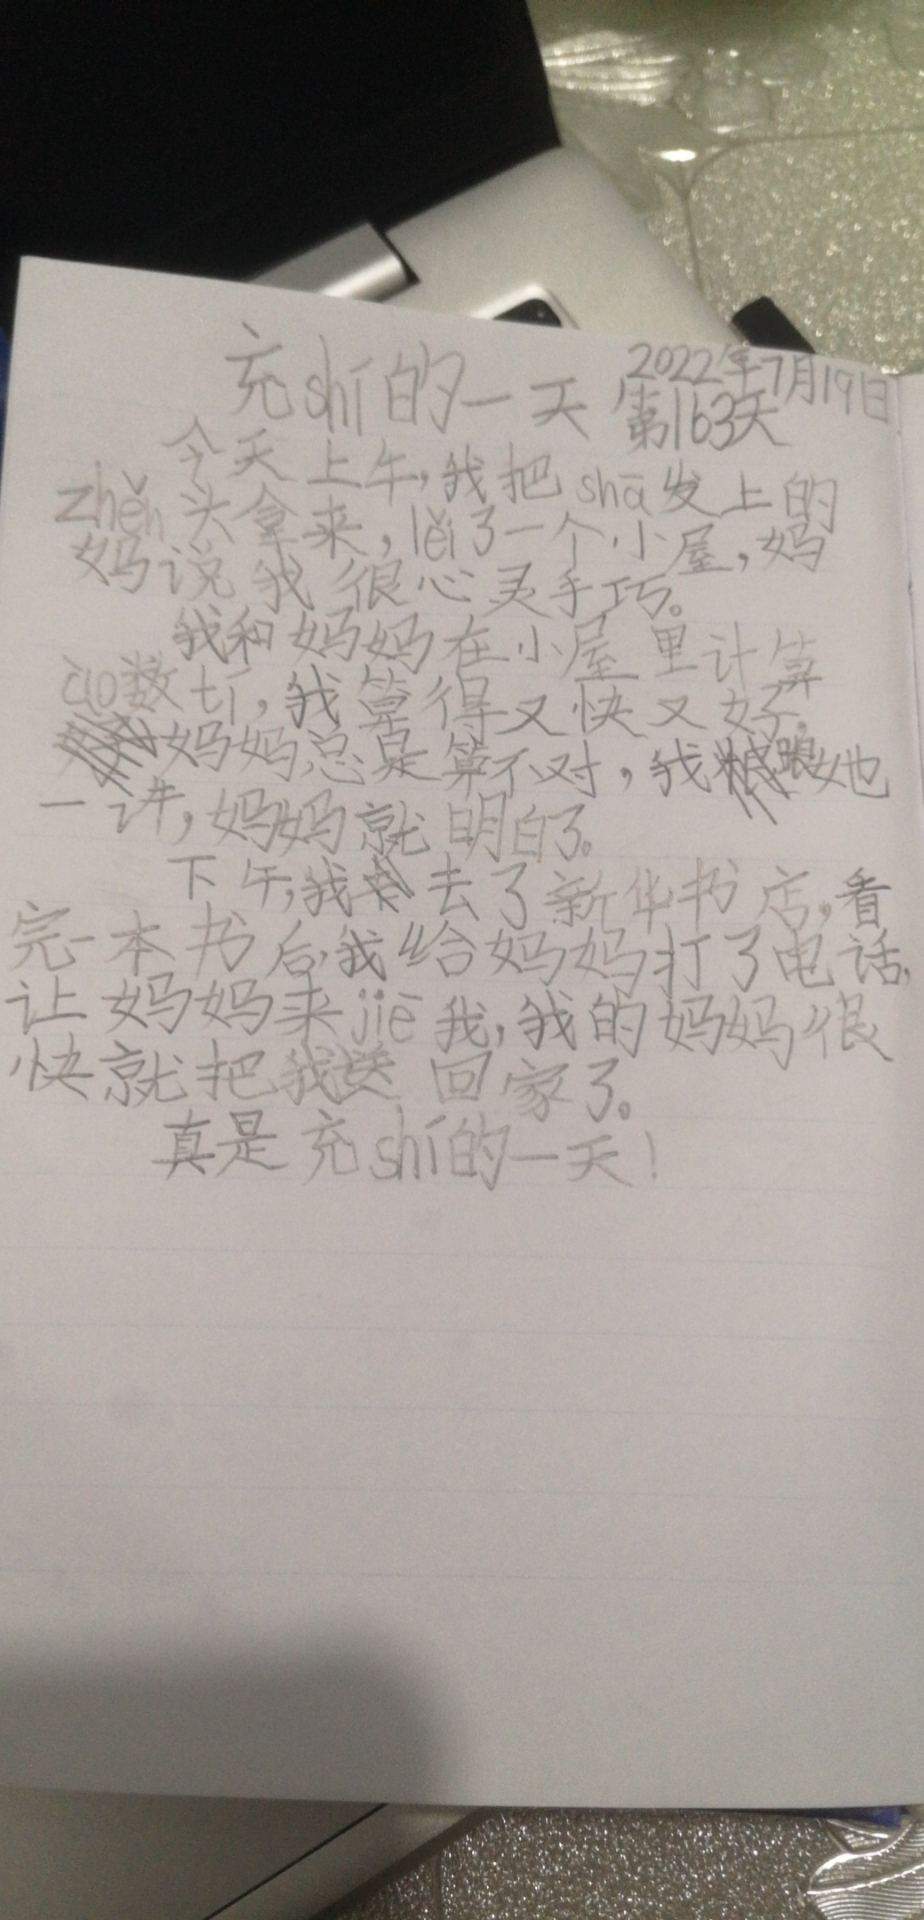 充shí的一天 2022年7月19日
第163天
今天上午,我把shā发上的
zhěn头拿来,lěi了一个小屋,妈
妈说我很心灵手巧。
我和妈妈在小屋里计算
数tí,我算得又快又好。
妈妈总是算不对,我跟她
一讲,妈妈就明白了。
下午,我去了新华书店,看
完一本书后,我给妈妈打了电话,
让妈妈来jiē我,我的妈妈很
快就把我送回家了。
真是充shí的一天!